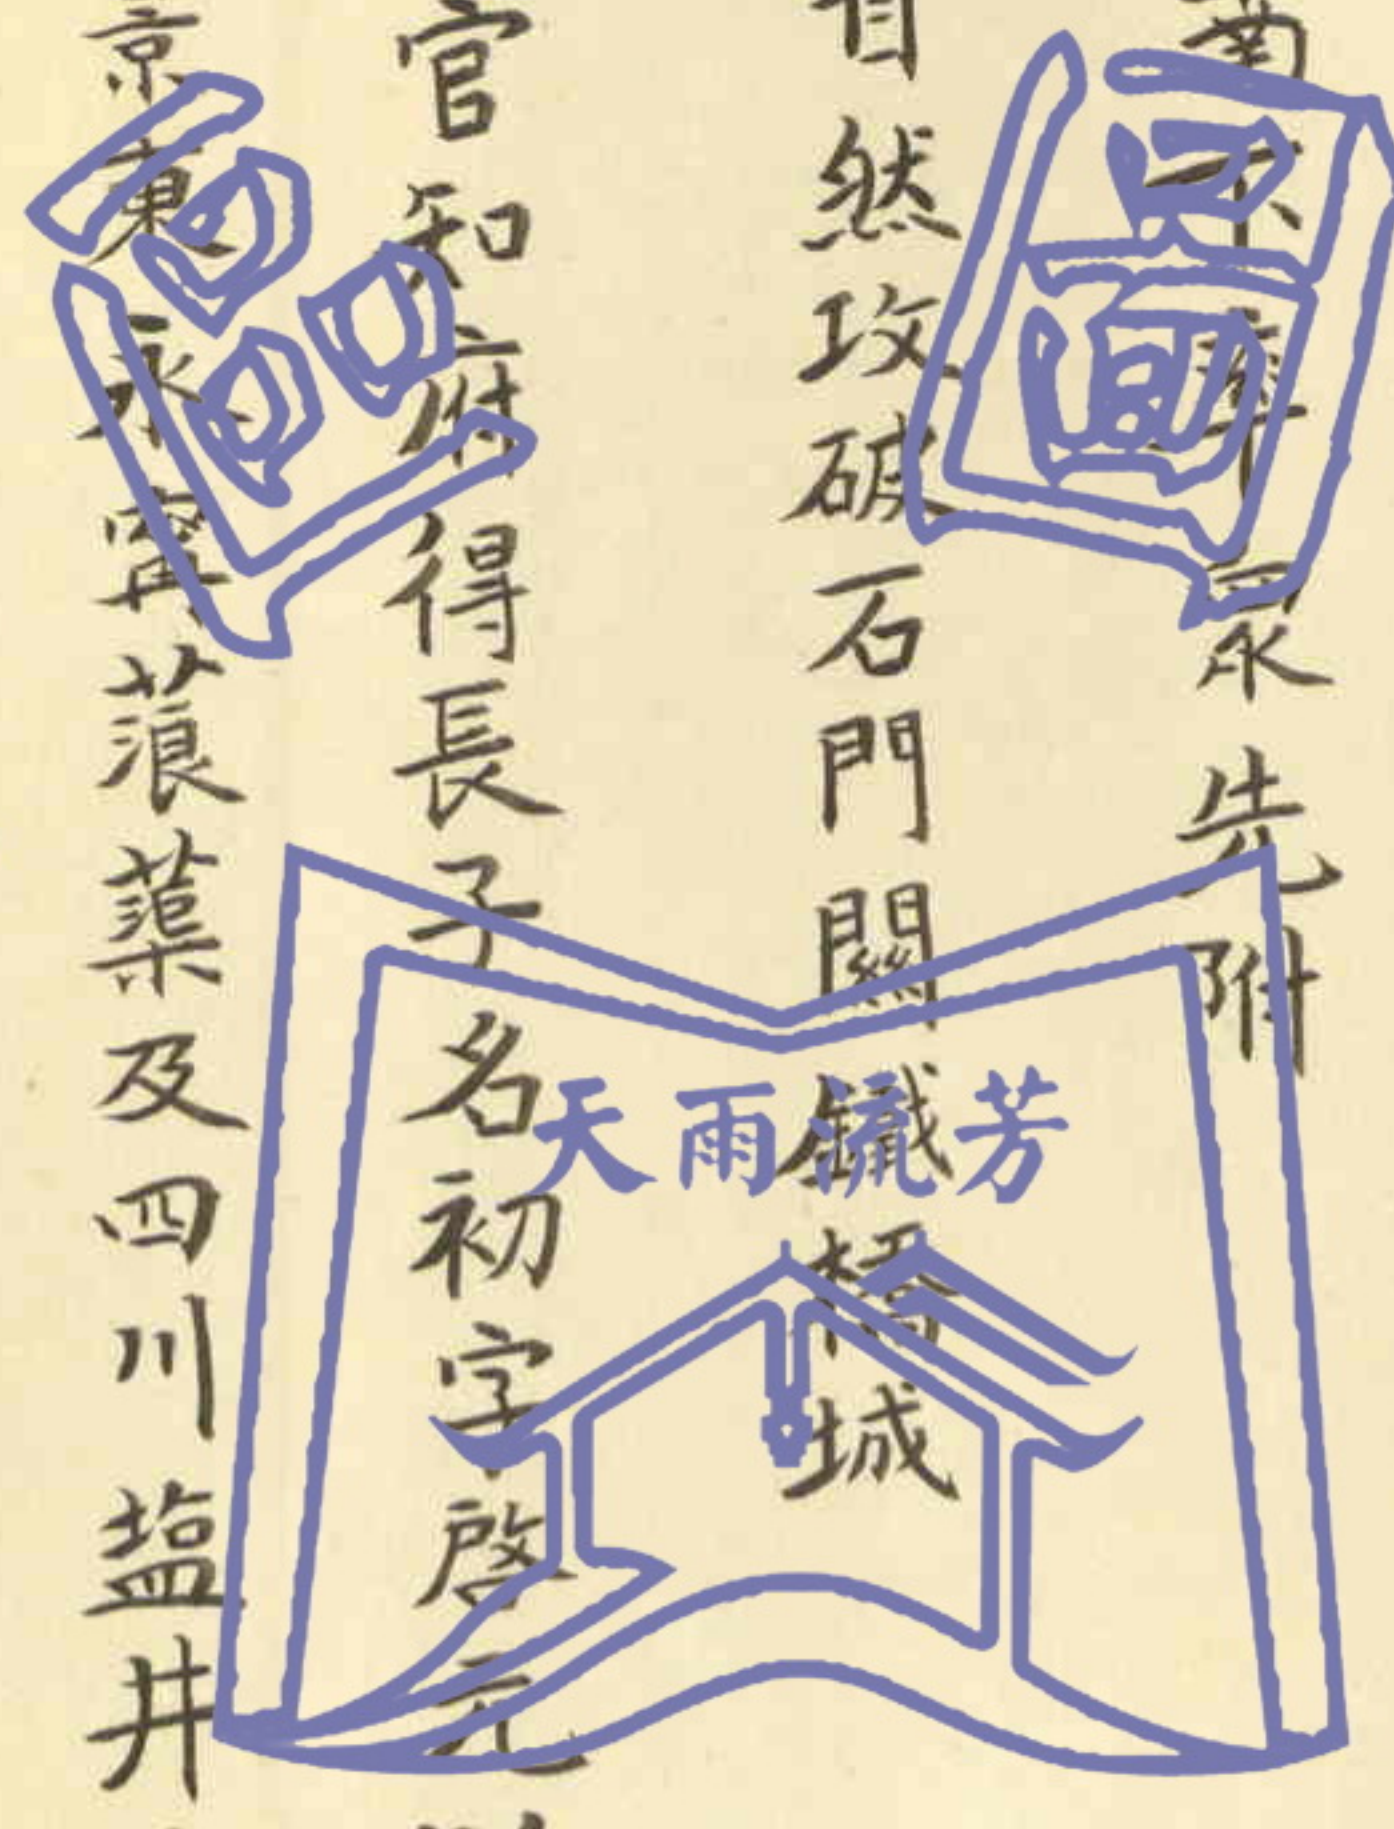 率眾先附
自然攻破石門關鐵橋城
官知府得長子名初字啓元
永寧蒗蕖及四川塩井
圖
天雨流芳